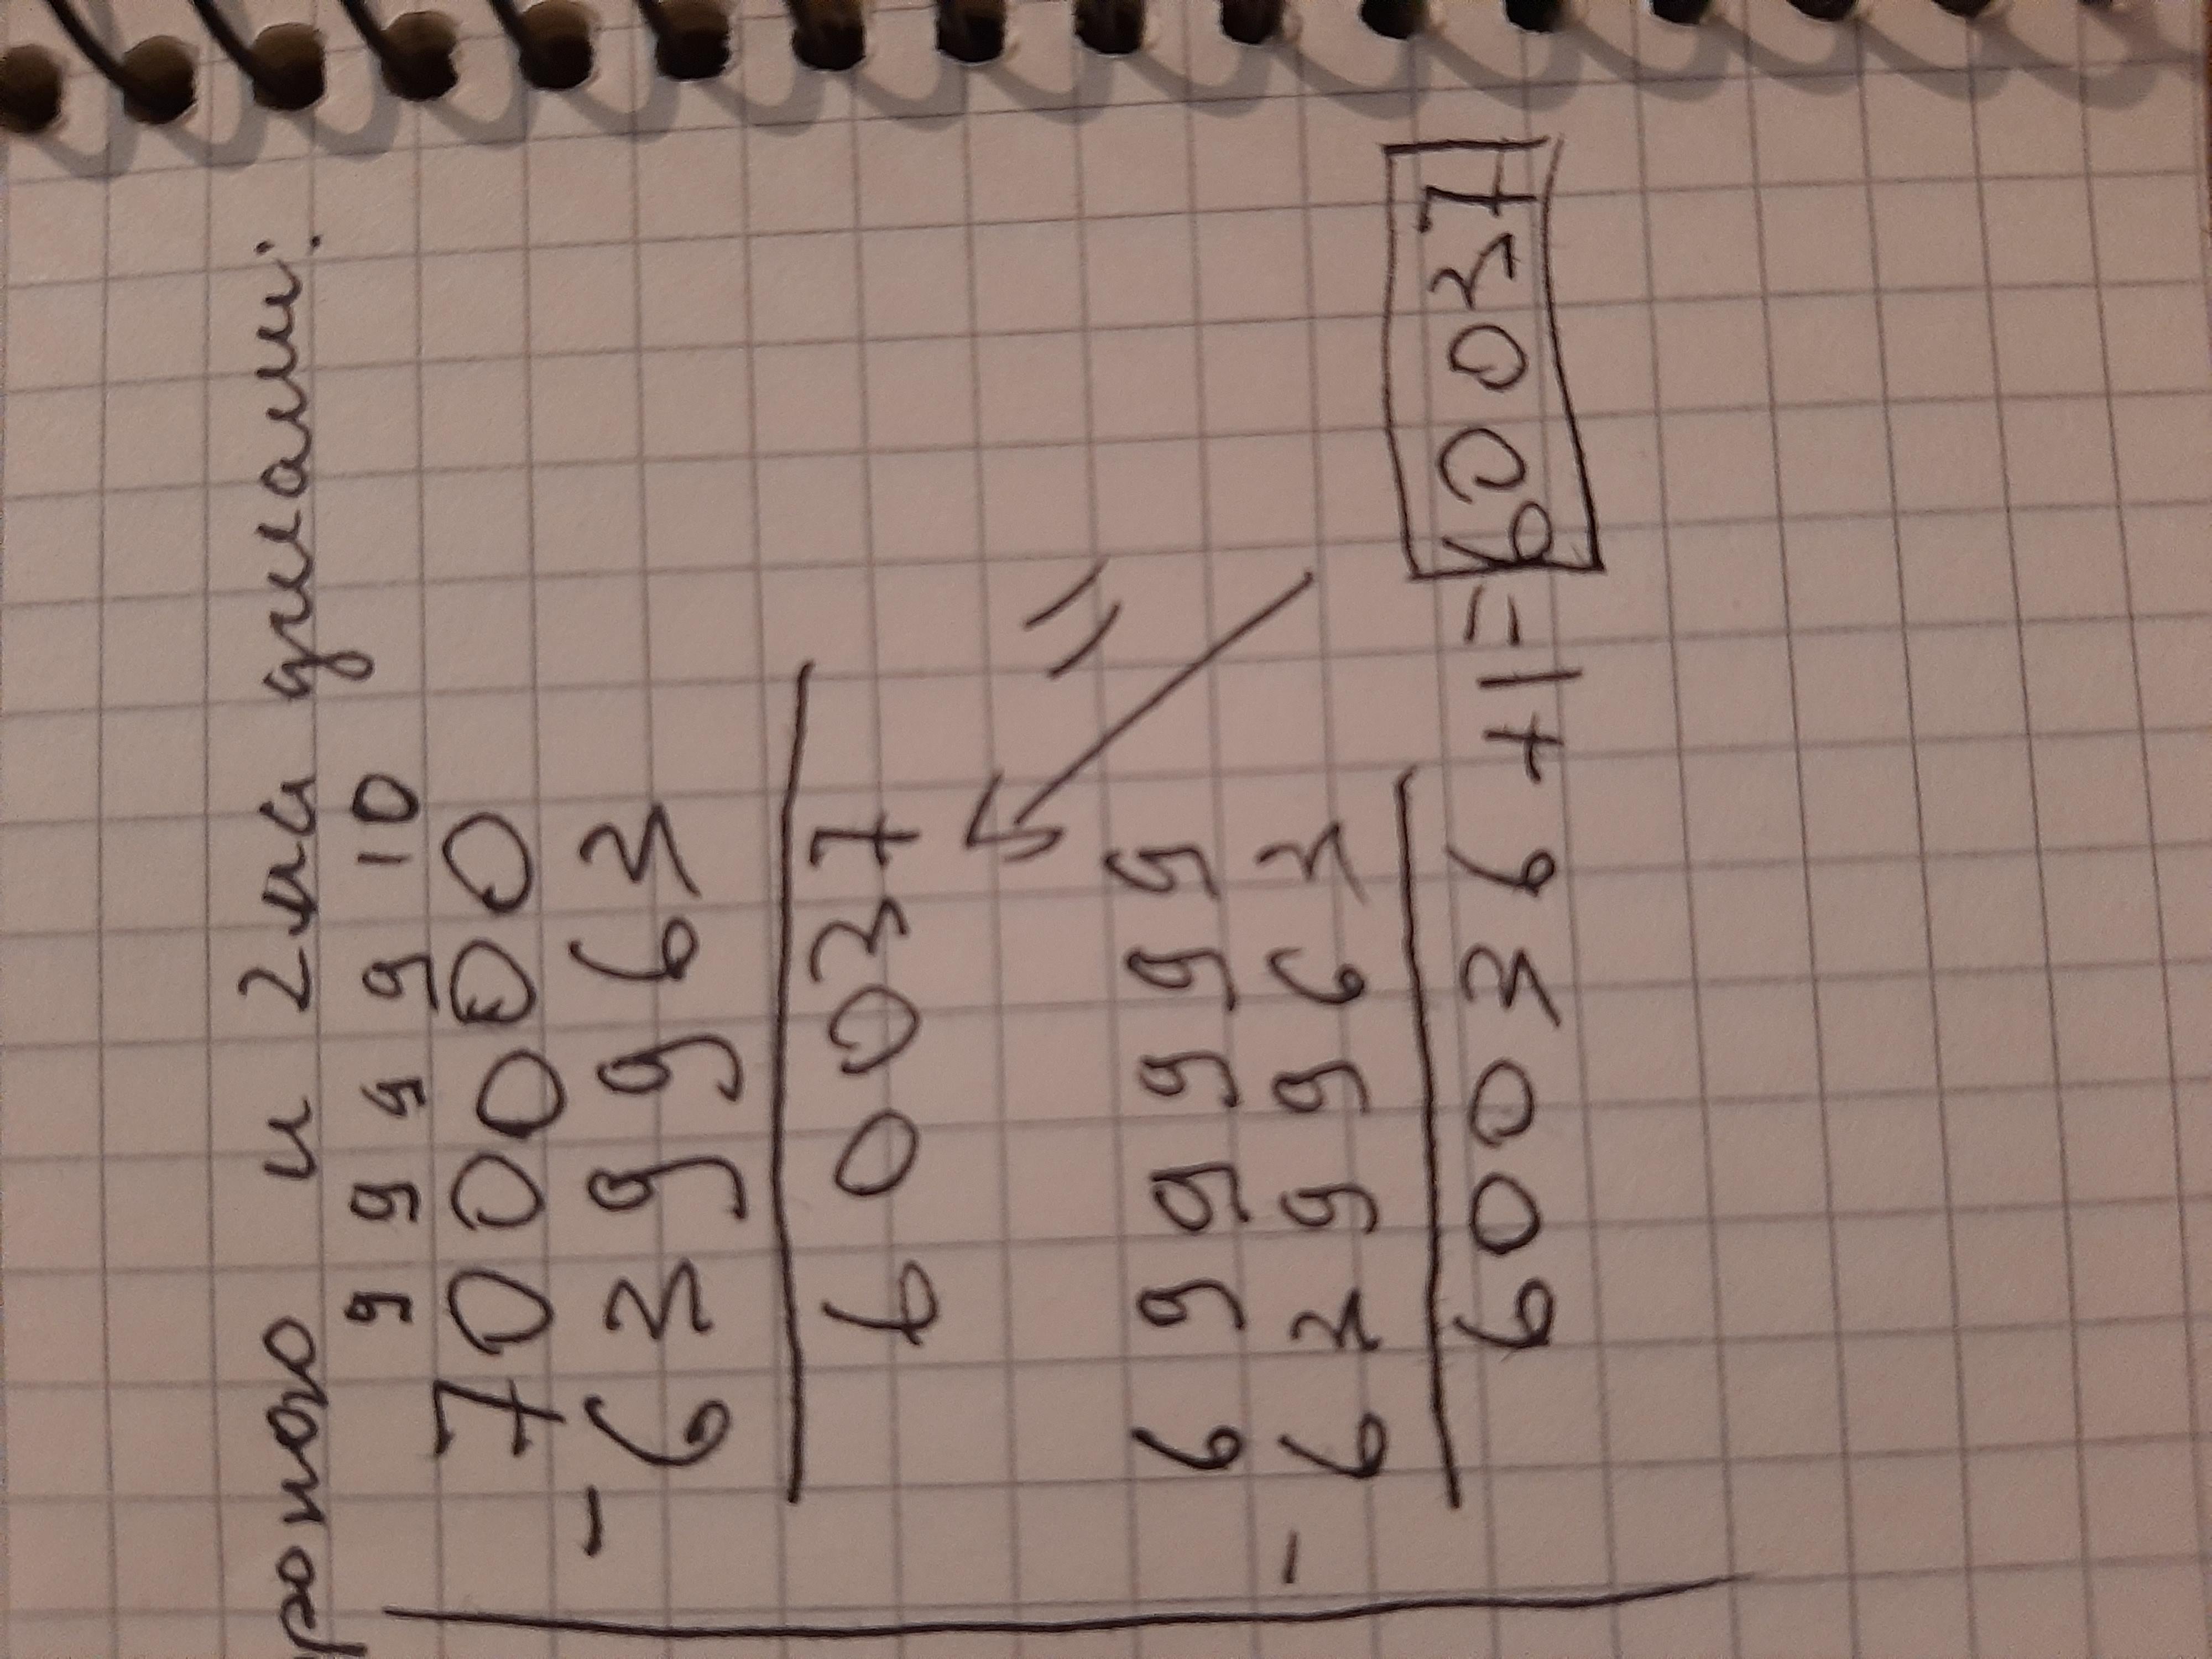 и 2-мя
9 9 9 9 10
700000
- 639963
60037
=
699999
- 639963
60036 +1= 60037